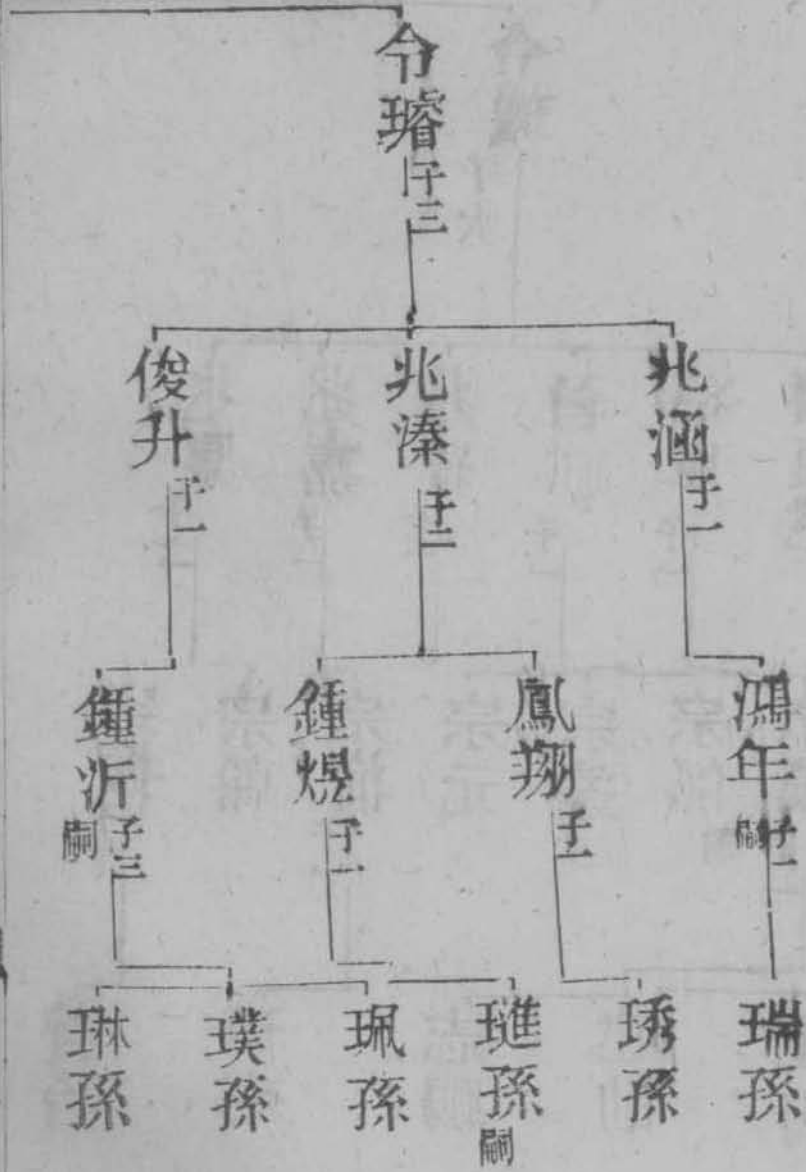 令璿 子三
兆涵 子一
兆溱 子二
俊升 子一
鴻年 嗣 子一
鳳翔 子一
鍾煜 子一
鍾沂 嗣 子三
瑞孫
琇孫
璡孫 嗣
珮孫
璞孫
琳孫